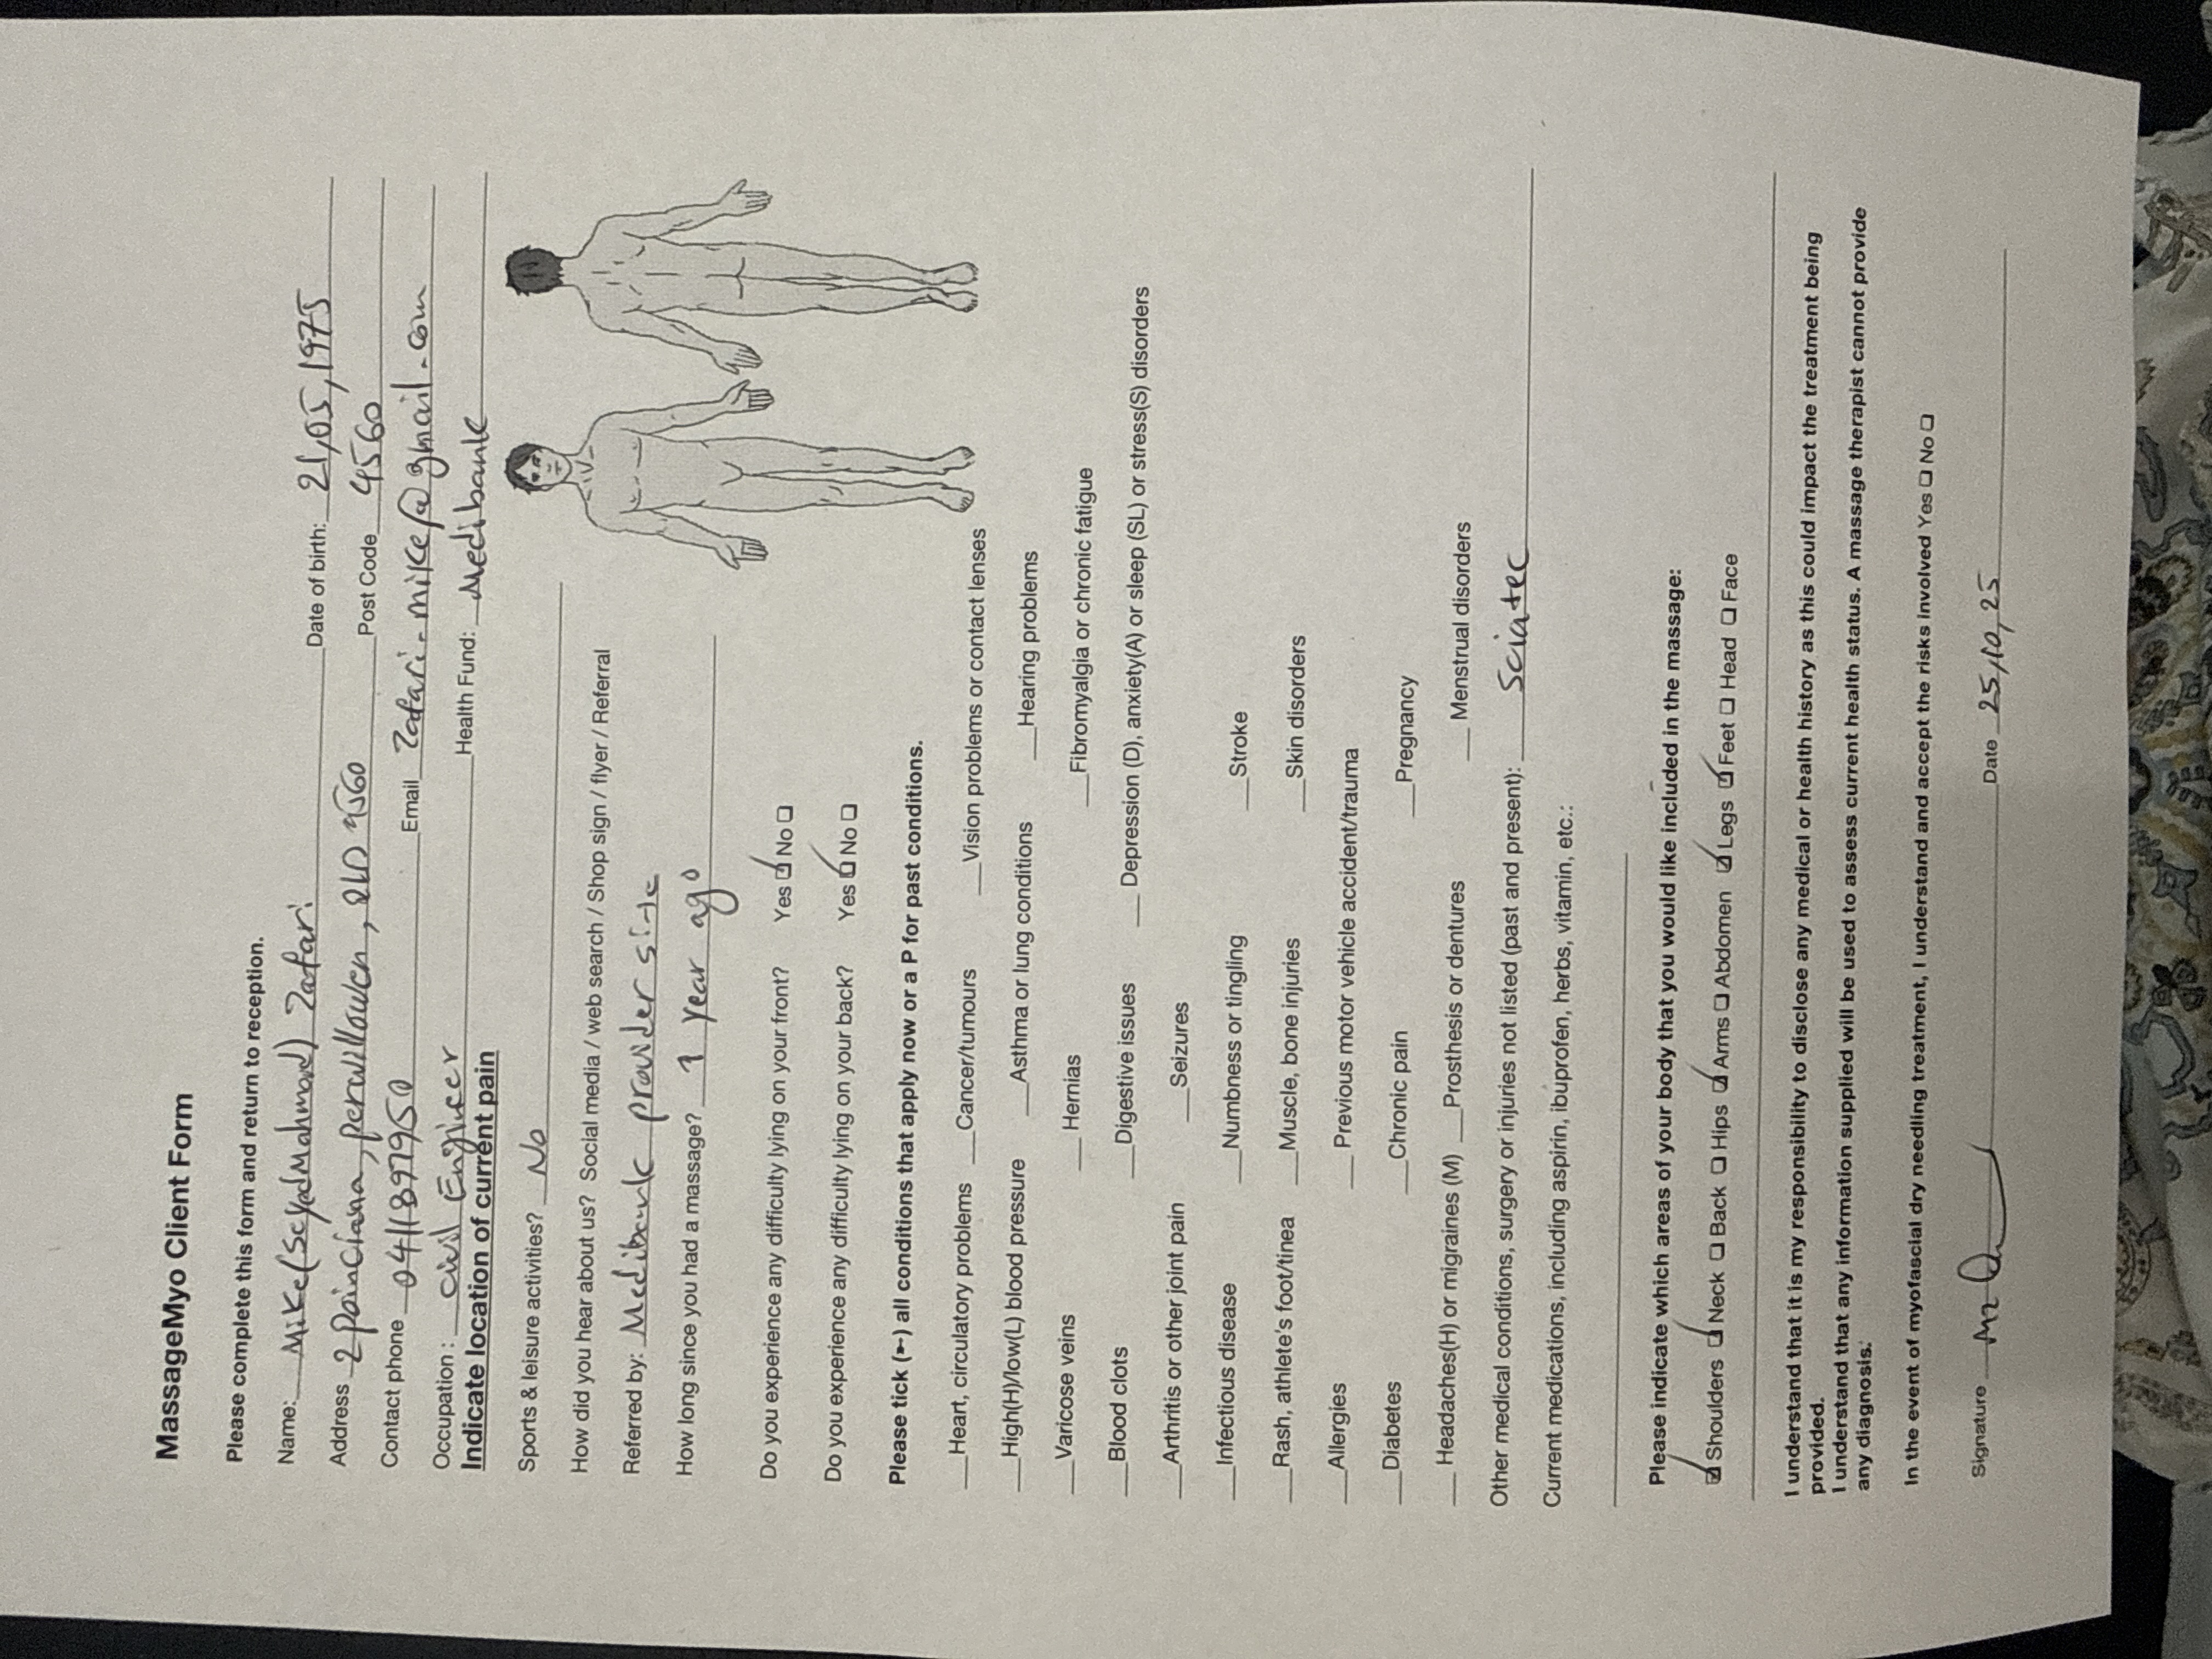 MassageMyo Client Form
Please complete this form and return to reception.
Name: Mike(SeyedMahmood) Zafari Date of birth: 21,05,1975
Address 2 poinciana, perwillowen, QLD 4560 Post Code 4560
Contact phone 0411897950 Email zafari.mike@gmail.com
Occupation : civil Engineer Health Fund: Medibank
Indicate location of current pain
Sports & leisure activities? No
How did you hear about us? Social media / web search / Shop sign / flyer / Referral
Referred by: Medibank provider site
How long since you had a massage? 1 year ago
Do you experience any difficulty lying on your front? Yes ☑ No ☐
Do you experience any difficulty lying on your back? Yes ☑ No ☐
Please tick (➳) all conditions that apply now or a P for past conditions.
__Heart, circulatory problems __Cancer/tumours __Vision problems or contact lenses
__High(H)/low(L) blood pressure __Asthma or lung conditions __Hearing problems
__Varicose veins __Hernias __Fibromyalgia or chronic fatigue
__Blood clots __Digestive issues __Depression (D), anxiety(A) or sleep (SL) or stress(S) disorders
__Arthritis or other joint pain __Seizures
__Infectious disease __Numbness or tingling __Stroke
__Rash, athlete's foot/tinea __Muscle, bone injuries __Skin disorders
__Allergies __Previous motor vehicle accident/trauma
__Diabetes __Chronic pain __Pregnancy
__Headaches(H) or migraines (M) __Prosthesis or dentures __Menstrual disorders
Other medical conditions, surgery or injuries not listed (past and present): Sciatec
Current medications, including aspirin, ibuprofen, herbs, vitamin, etc.:
Please indicate which areas of your body that you would like included in the massage:
☑ Shoulders ☑ Neck ☐ Back ☐ Hips ☑ Arms ☐ Abdomen ☑ Legs ☑ Feet ☐ Head ☐ Face
I understand that it is my responsibility to disclose any medical or health history as this could impact the treatment being
provided.
I understand that any information supplied will be used to assess current health status. A massage therapist cannot provide
any diagnosis.
In the event of myofascial dry needling treatment, I understand and accept the risks involved Yes ☐ No ☐
Signature Date 25,10,25